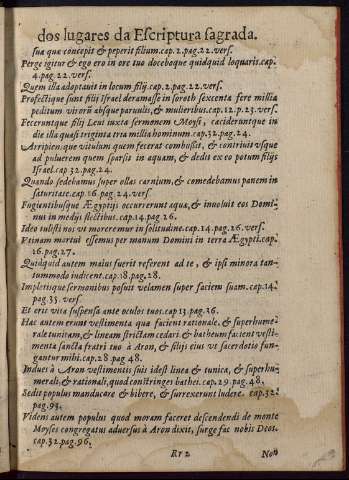 dos lugares da Escriptura sagrada.
sua quæ concepit & peperit filium.cap.2.pag.22.vers.
Perge igitur & ego ero in ore tuo doceboque quidquid loquaris.cap.
4.pag.22.vers.
Quem illa adoptauit in locum filij.cap.2.pag.22.vers.
Profectique sunt filij Israel deramasse in soroth sexcenta fere millia
peditum virorũ absque paruulis, & mulieribus.cap.12.p.23.vers.
Feceruntque filij Leui iuxta sermonem Moysi, cecideruntque in
die illa quasi triginta tria millia hominum.cap.32.pag.24.
Arripiensque vitulum quem fecerat combussit, & contriuit vsque
ad puluerem quem sparsit in aquam, & dedit ex eo potum filijs
Israel.cap 32.pag.24.
Quando sedebamus super ollas carnium, & comedebamus panem in
saturitate.cap.16.pag.24.vers.
Fugientibusque Ægyptijs occurrerunt aquæ, & inuoluit eos Domi-
nus in medijs fluctibus.cap.14.pag.26.
Ideo tulisti nos vt moreremur in solitudine.cap.14.pag.26.vers.
Vtinam mortui essemus per manum Domini in terra Ægypti.cap.
16.pag.27.
Quidquid autem maius fuerit referent ad te, & ipsi minora tan-
tummodo iudicent.cap.18.pag.28.
Impletisque sermonibus posuit velamen super faciem suam.cap.14.
pag.33.vers.
Et erit vita suspensa ante oculos tuos.cap.13.pag.26.
Hæc autem erunt vestimenta quæ facient rationale, & superhume-
rale tunicam, & lineam strictam cedari & batheum facient vesti-
menta sancta fratri tuo à Aron, & filijs eius vt sacerdotio fun-
gantur mihi.cap.28.pag 48.
Indues à Aron vestimentis suis idest linea & tunica, & superhu-
merali, & rationali, quod constringes bathei.cap.29.pag.48.
Sedit populus manducare & bibere, & surrexerunt ludere. cap.32.
pag.93.
Videns autem populus quod moram faceret descendendi de monte
Moyses congregatus aduersus à Aron dixit, surge fac nobis Deos.
cap.32.pag.96.
Rr2
Non